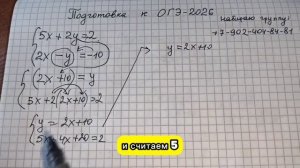 Подготовка к ОГЭ-2026
набираю группу:
+7-902-404-84-81
5x + 2y = 2
2x - y = -10
(2x + 10) = y
5x + 2(2x + 10) = 2
y = 2x + 10
5x + 4x + 20 = 2
y = 2x + 10
и считаем 5